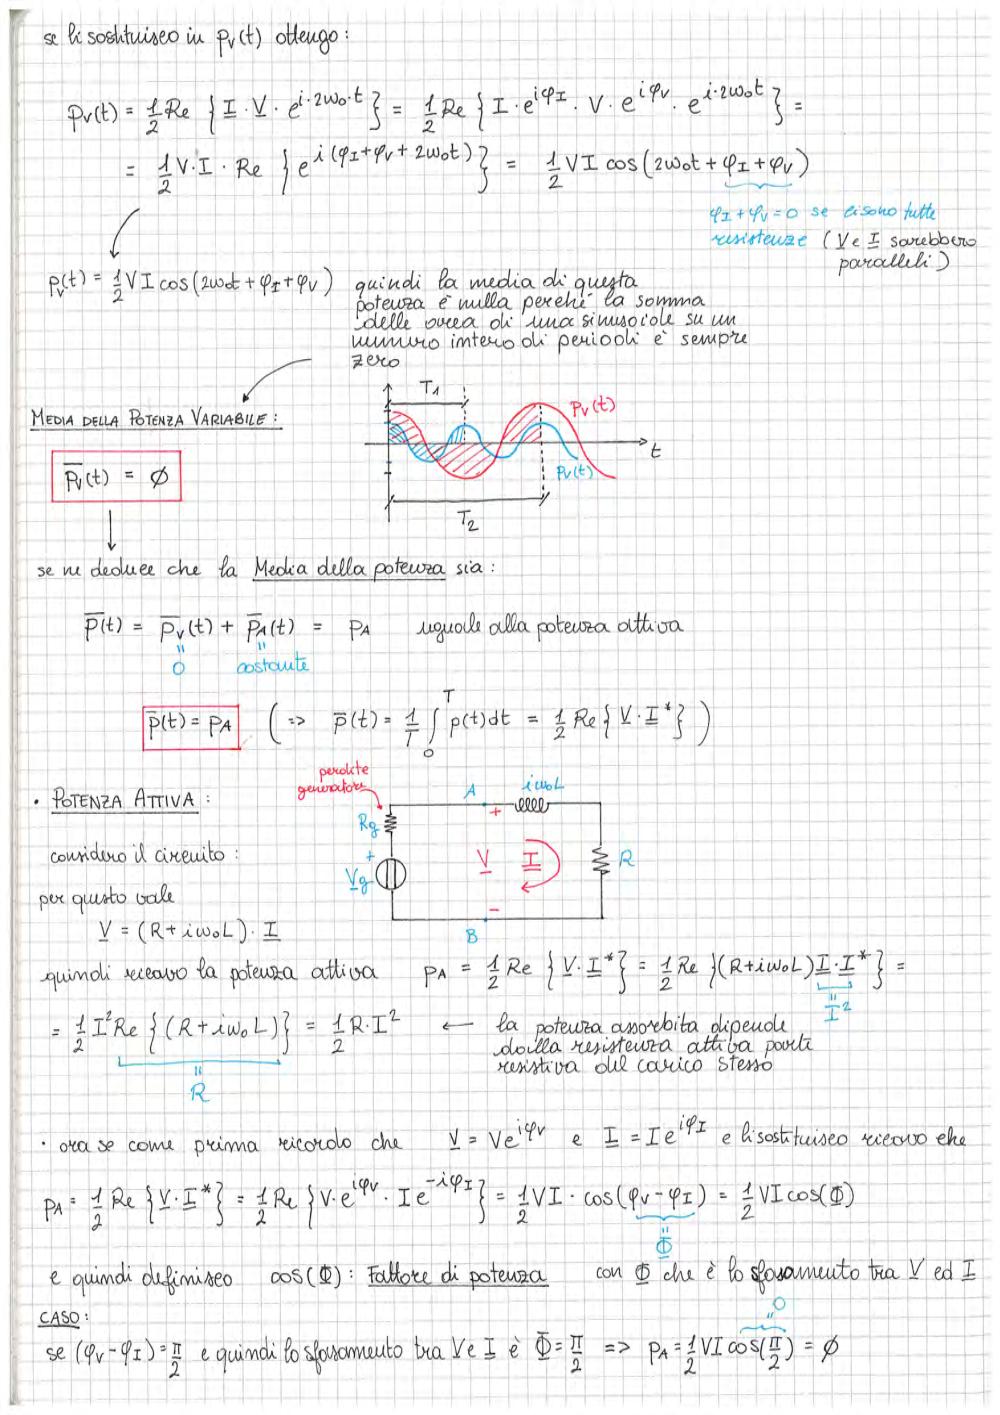 se li sostituisco in pv(t) ottengo :
Pv(t) = 1/2 Re { I · V · e^{i·2ω₀·t} } = 1/2 Re { I · e^{iφI} · V · e^{iφV} · e^{i·2ω₀t} } =
= 1/2 V·I · Re { e^{i(φI+φV+2ω₀t)} } = 1/2 VI cos(2ω₀t + φI + φV)
φI + φV = 0 se ci sono tutte
resistenze (V e I sarebbero
paralleli)
Pv(t) = 1/2 VI cos(2ω₀t + φI + φV) quindi la media di questa
potenza è nulla perché la somma
delle aree di una sinusoide su un
numero intero di periodi è sempre
zero
MEDIA DELLA POTENZA VARIABILE :
T1
Pv(t)
t
Pv(t)
T2
P̄v(t) = ∅
se ne deduce che la Media della potenza sia :
P̄(t) = P̄v(t) + P̄A(t) = PA uguale alla potenza attiva
" "
0 costante
P̄(t) = PA ( => P̄(t) = 1/T ∫₀ᵀ p(t)dt = 1/2 Re { V · I* } )
• POTENZA ATTIVA :
perdite
generatore
A
iω₀L
+
Rg
+
Vg
V
I
R
-
B
considero il circuito :
per questo vale
V = (R + iω₀L) · I
quindi ricavo la potenza attiva PA = 1/2 Re { V · I* } = 1/2 Re { (R + iω₀L) I · I* } =
" I²
= 1/2 I² Re { (R + iω₀L) } = 1/2 R·I² ← la potenza assorbita dipende
dalla resistenza attiva parte
resistiva del carico stesso
"
R
· ora se come prima ricordo che V = Ve^{iφV} e I = Ie^{iφI} e li sostituisco ricavo che
PA = 1/2 Re { V · I* } = 1/2 Re { V·e^{iφV} · Ie^{-iφI} } = 1/2 VI · cos(φV - φI) = 1/2 VI cos(Φ)
"
Φ
e quindi definisco cos(Φ) : Fattore di potenza con Φ che è lo sfasamento tra V ed I
CASO :
" 0
se (φV - φI) = π/2 e quindi lo sfasamento tra V e I è Φ = π/2 => PA = 1/2 VI cos(π/2) = ∅